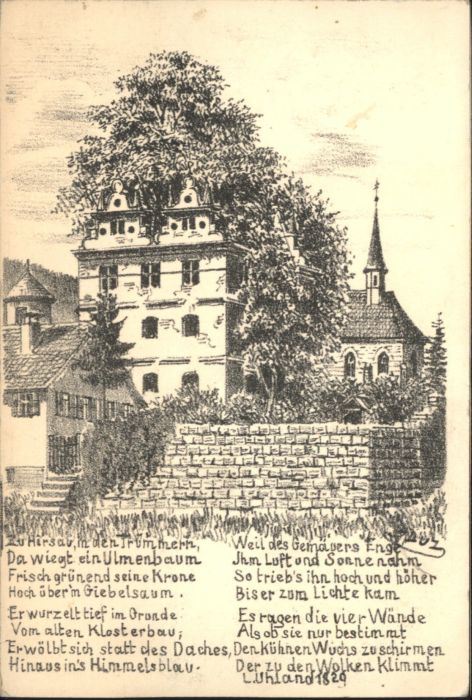 Zu Hirsau, in den Trümmern,
Da wiegt ein Ulmenbaum
Frisch grünend seine Krone
Hoch über'm Giebelsaum.
Er wurzelt tief im Grunde
Vom alten Klosterbau;
Er wölbt sich statt des Daches,
Hinaus in's Himmelsblau.
Weil des Gemäuers Enge
Ihm Luft und Sonne nahm
So trieb's ihn hoch und höher
Bis er zum Lichte kam
Es ragen die vier Wände
Als ob sie nur bestimmt
Den kühnen Wuchs zu schirmen
Der zu den Wolken klimmt
L. Uhland 1829